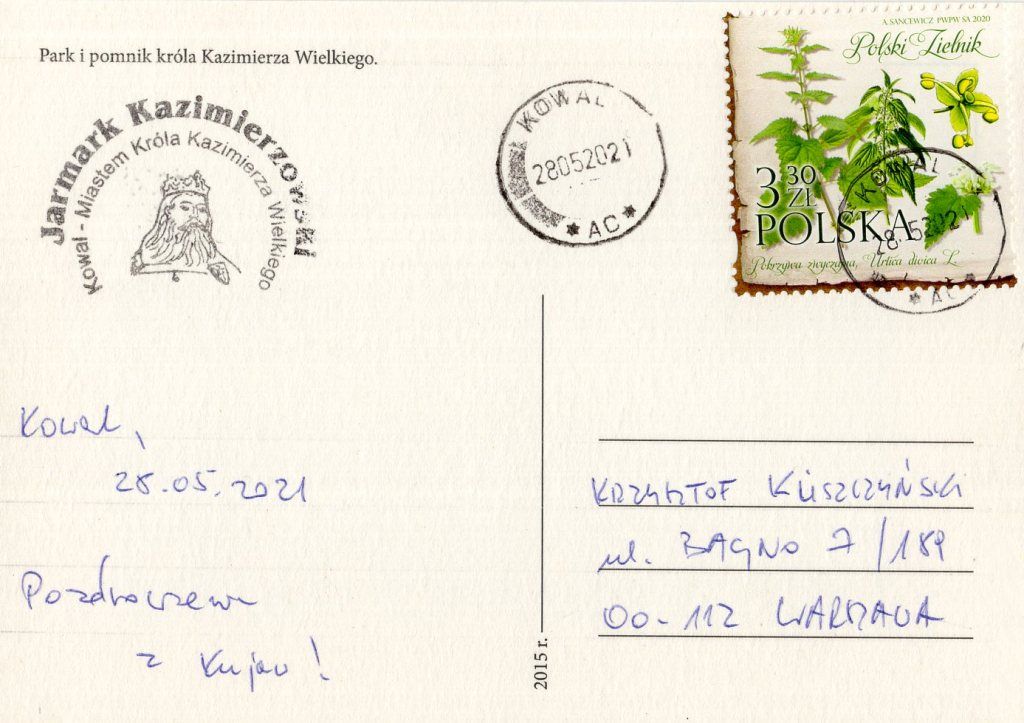 Park i pomnik króla Kazimierza Wielkiego.
Jarmark Kazimierzowski
Kowal - Miastem Króla Kazimierza Wielkiego
KOWAL
28052021
* AC *
A. SANCEWICZ PWPW SA 2020
Polski Zielnik
3 30 ZŁ
POLSKA
Pokrzywa zwyczajna, Urtica dioica L.
KOWAL
* AC *
Kowal,
28.05.2021
Pozdrowzenia
z Kujaw!
2015 r.
KRZYSZTOF KLISZCZYŃSKI
ul. BAGNO 7/189
00-112 WARSZAWA